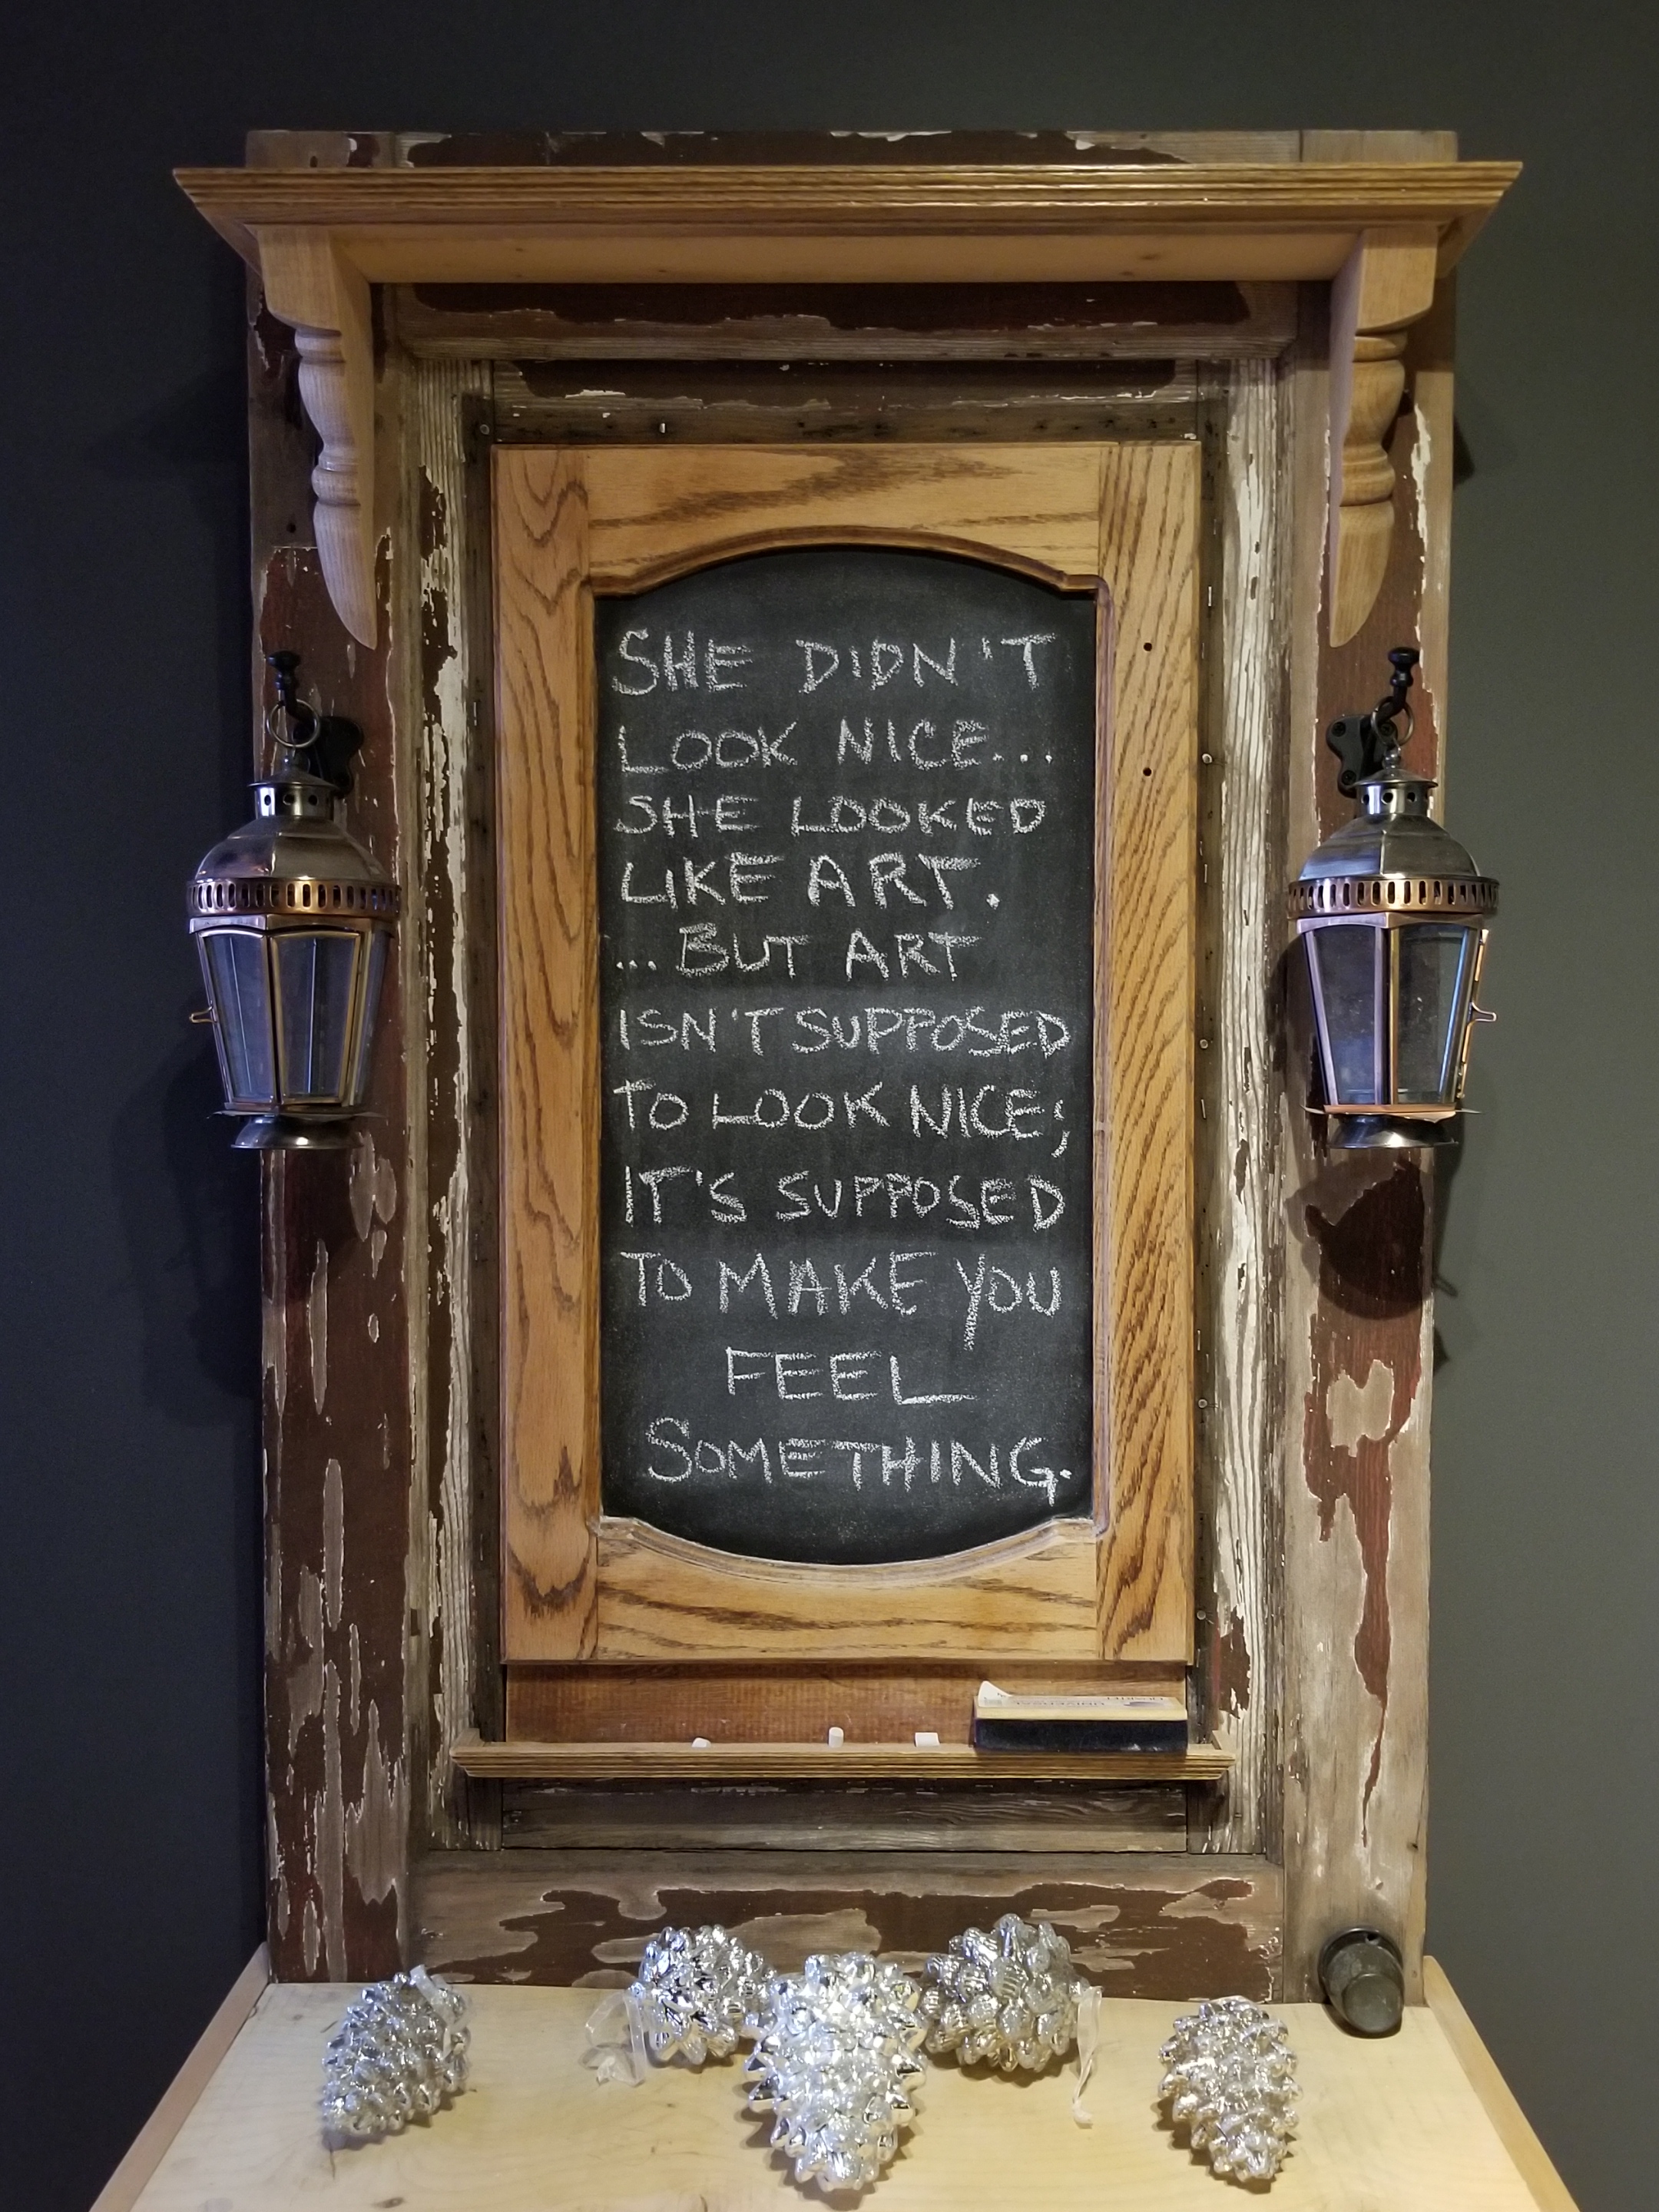 SHE DIDN'T
LOOK NICE...
SHE LOOKED
LIKE ART.
...BUT ART
ISN'T SUPPOSED
TO LOOK NICE;
IT'S SUPPOSED
TO MAKE YOU
FEEL
SOMETHING.
UNIVERSAL